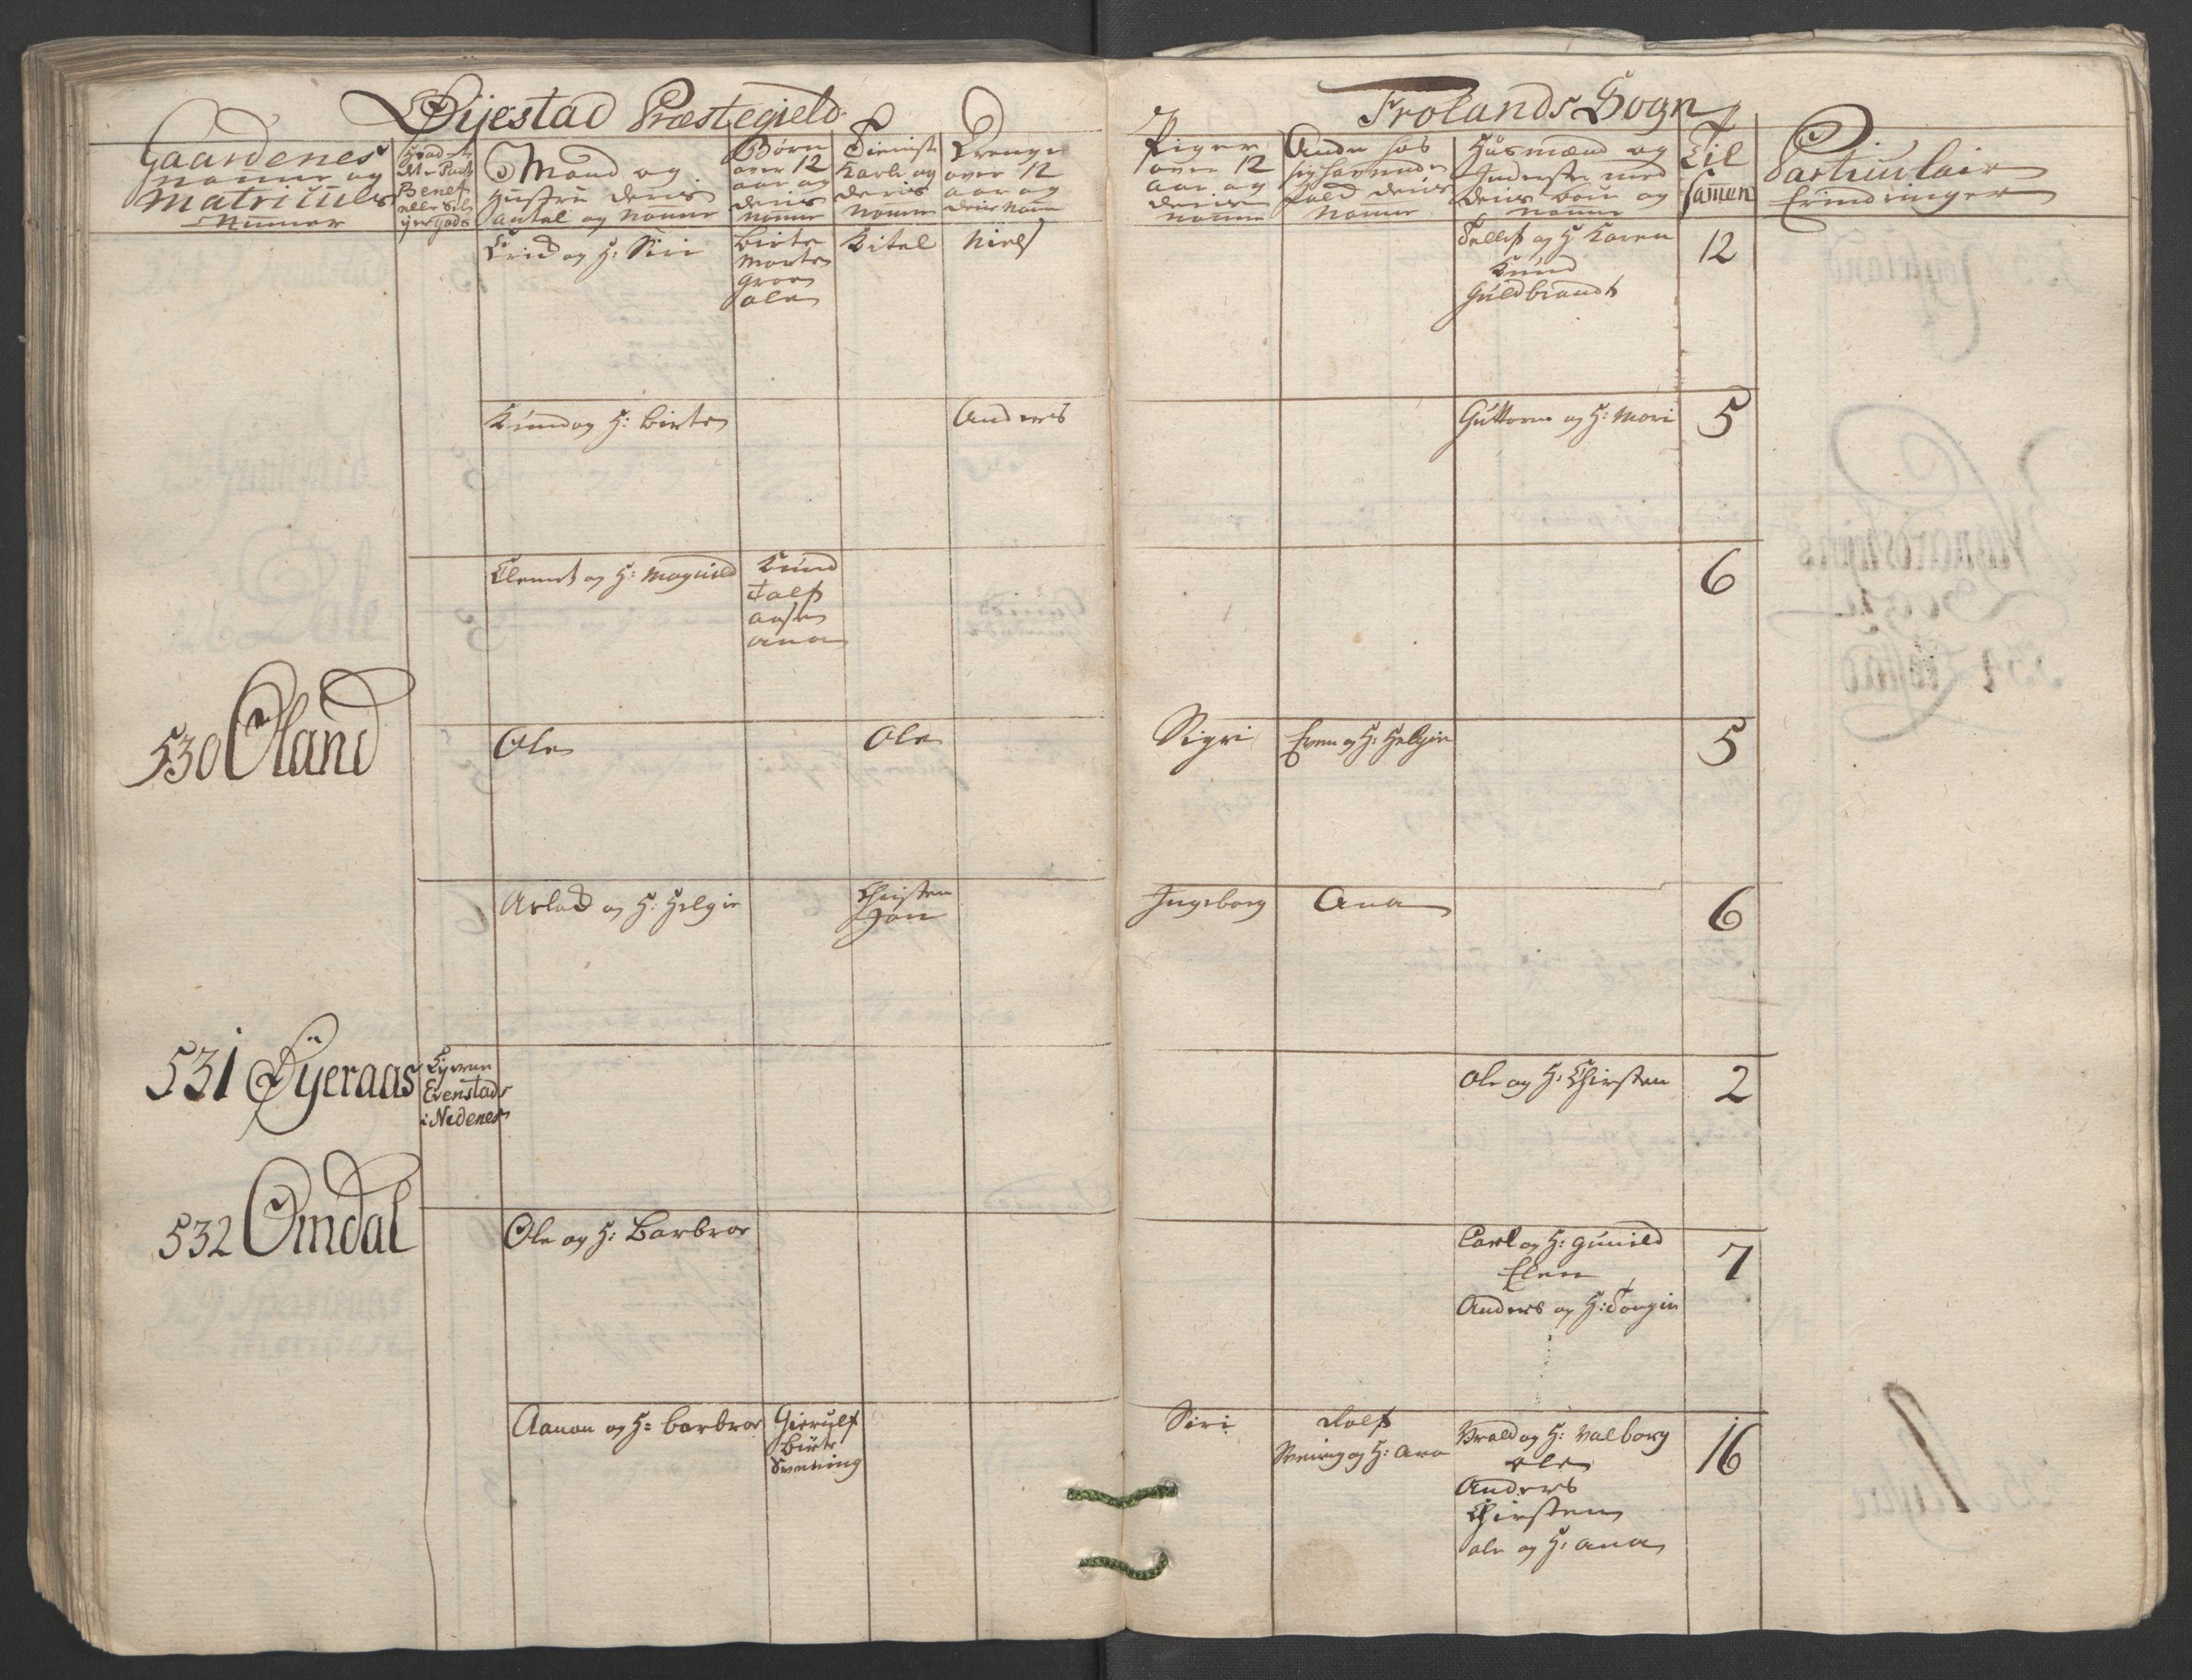 Øyestad Præstegield
Frolands Sogn
Gaardenes
Nafne og
Matriculs
Numer
Mand og
Hustru deris
antal og Nafne
Børn
over 12
aar og
deris
Nafne
Tieniste
Karle og
deris
Nafne
Drenge
over 12
aar og
deris Nafne
Piger
over 12
aar og
deris
Nafne
Andre hos
sig havende
Folk deris
Nafne
Husmænd og
Inderste med
deris Børn og
Nafne
Til
samen
Particulair
Erindringer
og H: Siri
Birte
Marte
Groe
Ole
Kitel
Niels
og H: Karen
Knud
Guldbrandt
12
Knud og H: Birte
Anders
Guttorm og H: Mari
5
Clemet og H: Magnild
Knud
Talf
Aase
Ana
6
530 Øland
Ole
Ole
Sigri
Even og H: Helgie
5
Aslad og H: Helgie
Christen
Jon
Ingeborg
Ana
6
531 Øyeraas
Evenstads
i Nedenes
Ole og H: Chirsten
2
532 Omdal
Ole og H: Barbroe
Carl og H: Gunild
Elen
Anders og H: Torgie
7
Aanon og H: Barbroe
Gierulf
Birte
Svening
Siri
Svening og H: Ana
og H: Valborg
Ole
Anders
Chirsten
Ole og H: Ana
16